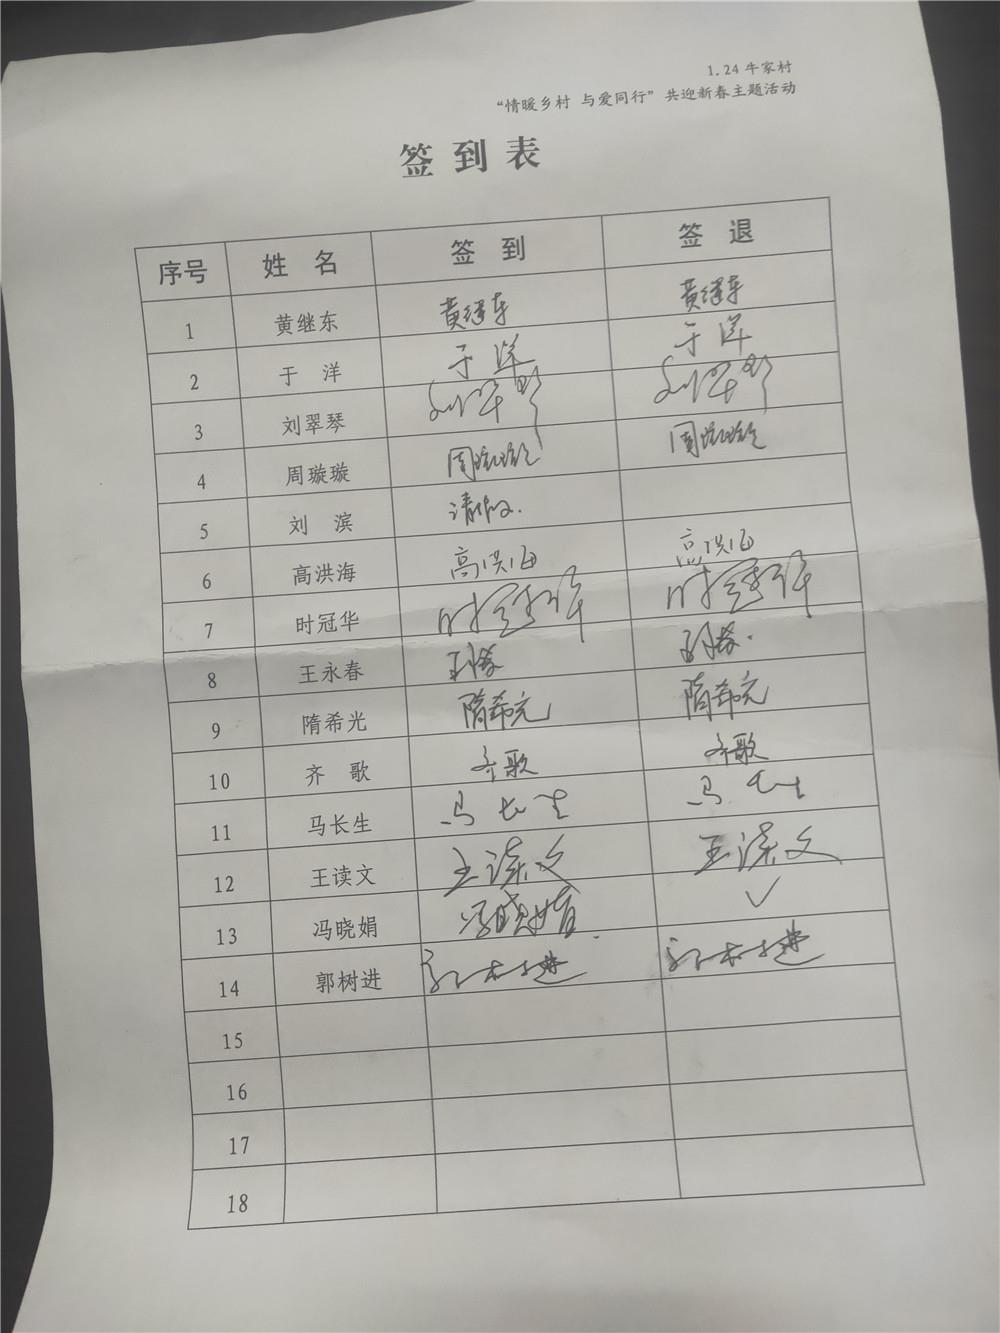 1.24 牛家村
“情暖乡村 与爱同行”共迎新春主题活动
签到表
序号 姓名 签到 签退
1 黄继东 黄继东 黄继东
2 于洋 于洋 于洋
3 刘翠琴 刘翠琴 刘翠琴
4 周璇璇 周璇璇 周璇璇
5 刘滨
6 高洪海 高洪海 高洪海
7 时冠华 时冠华 时冠华
8 王永春 王永春 王永春
9 隋希光 隋希光 隋希光
10 齐歌 齐歌 齐歌
11 马长生 马长生 马长生
12 王读文 王读文 王读文
13 冯晓娟 冯晓娟 ✓
14 郭树进 郭树进 郭树进
15
16
17
18